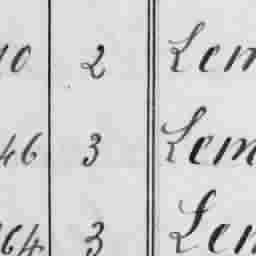 10 2 Lem
46 3 Lem
164 3 Lem